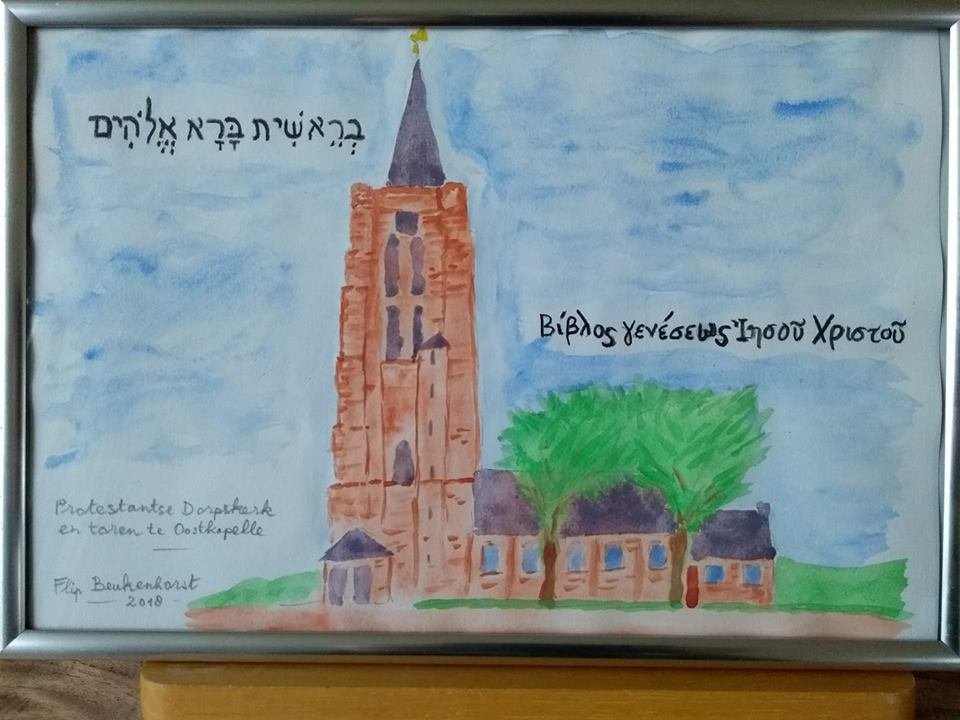 בְּרֵאשִׁית בָּרָא אֱלֹהִים
Βίβλος γενέσεως Ἰησοῦ Χριστοῦ
Protestantse Dorpskerk
en toren te Oostkapelle
Flip Beukenhorst
2018